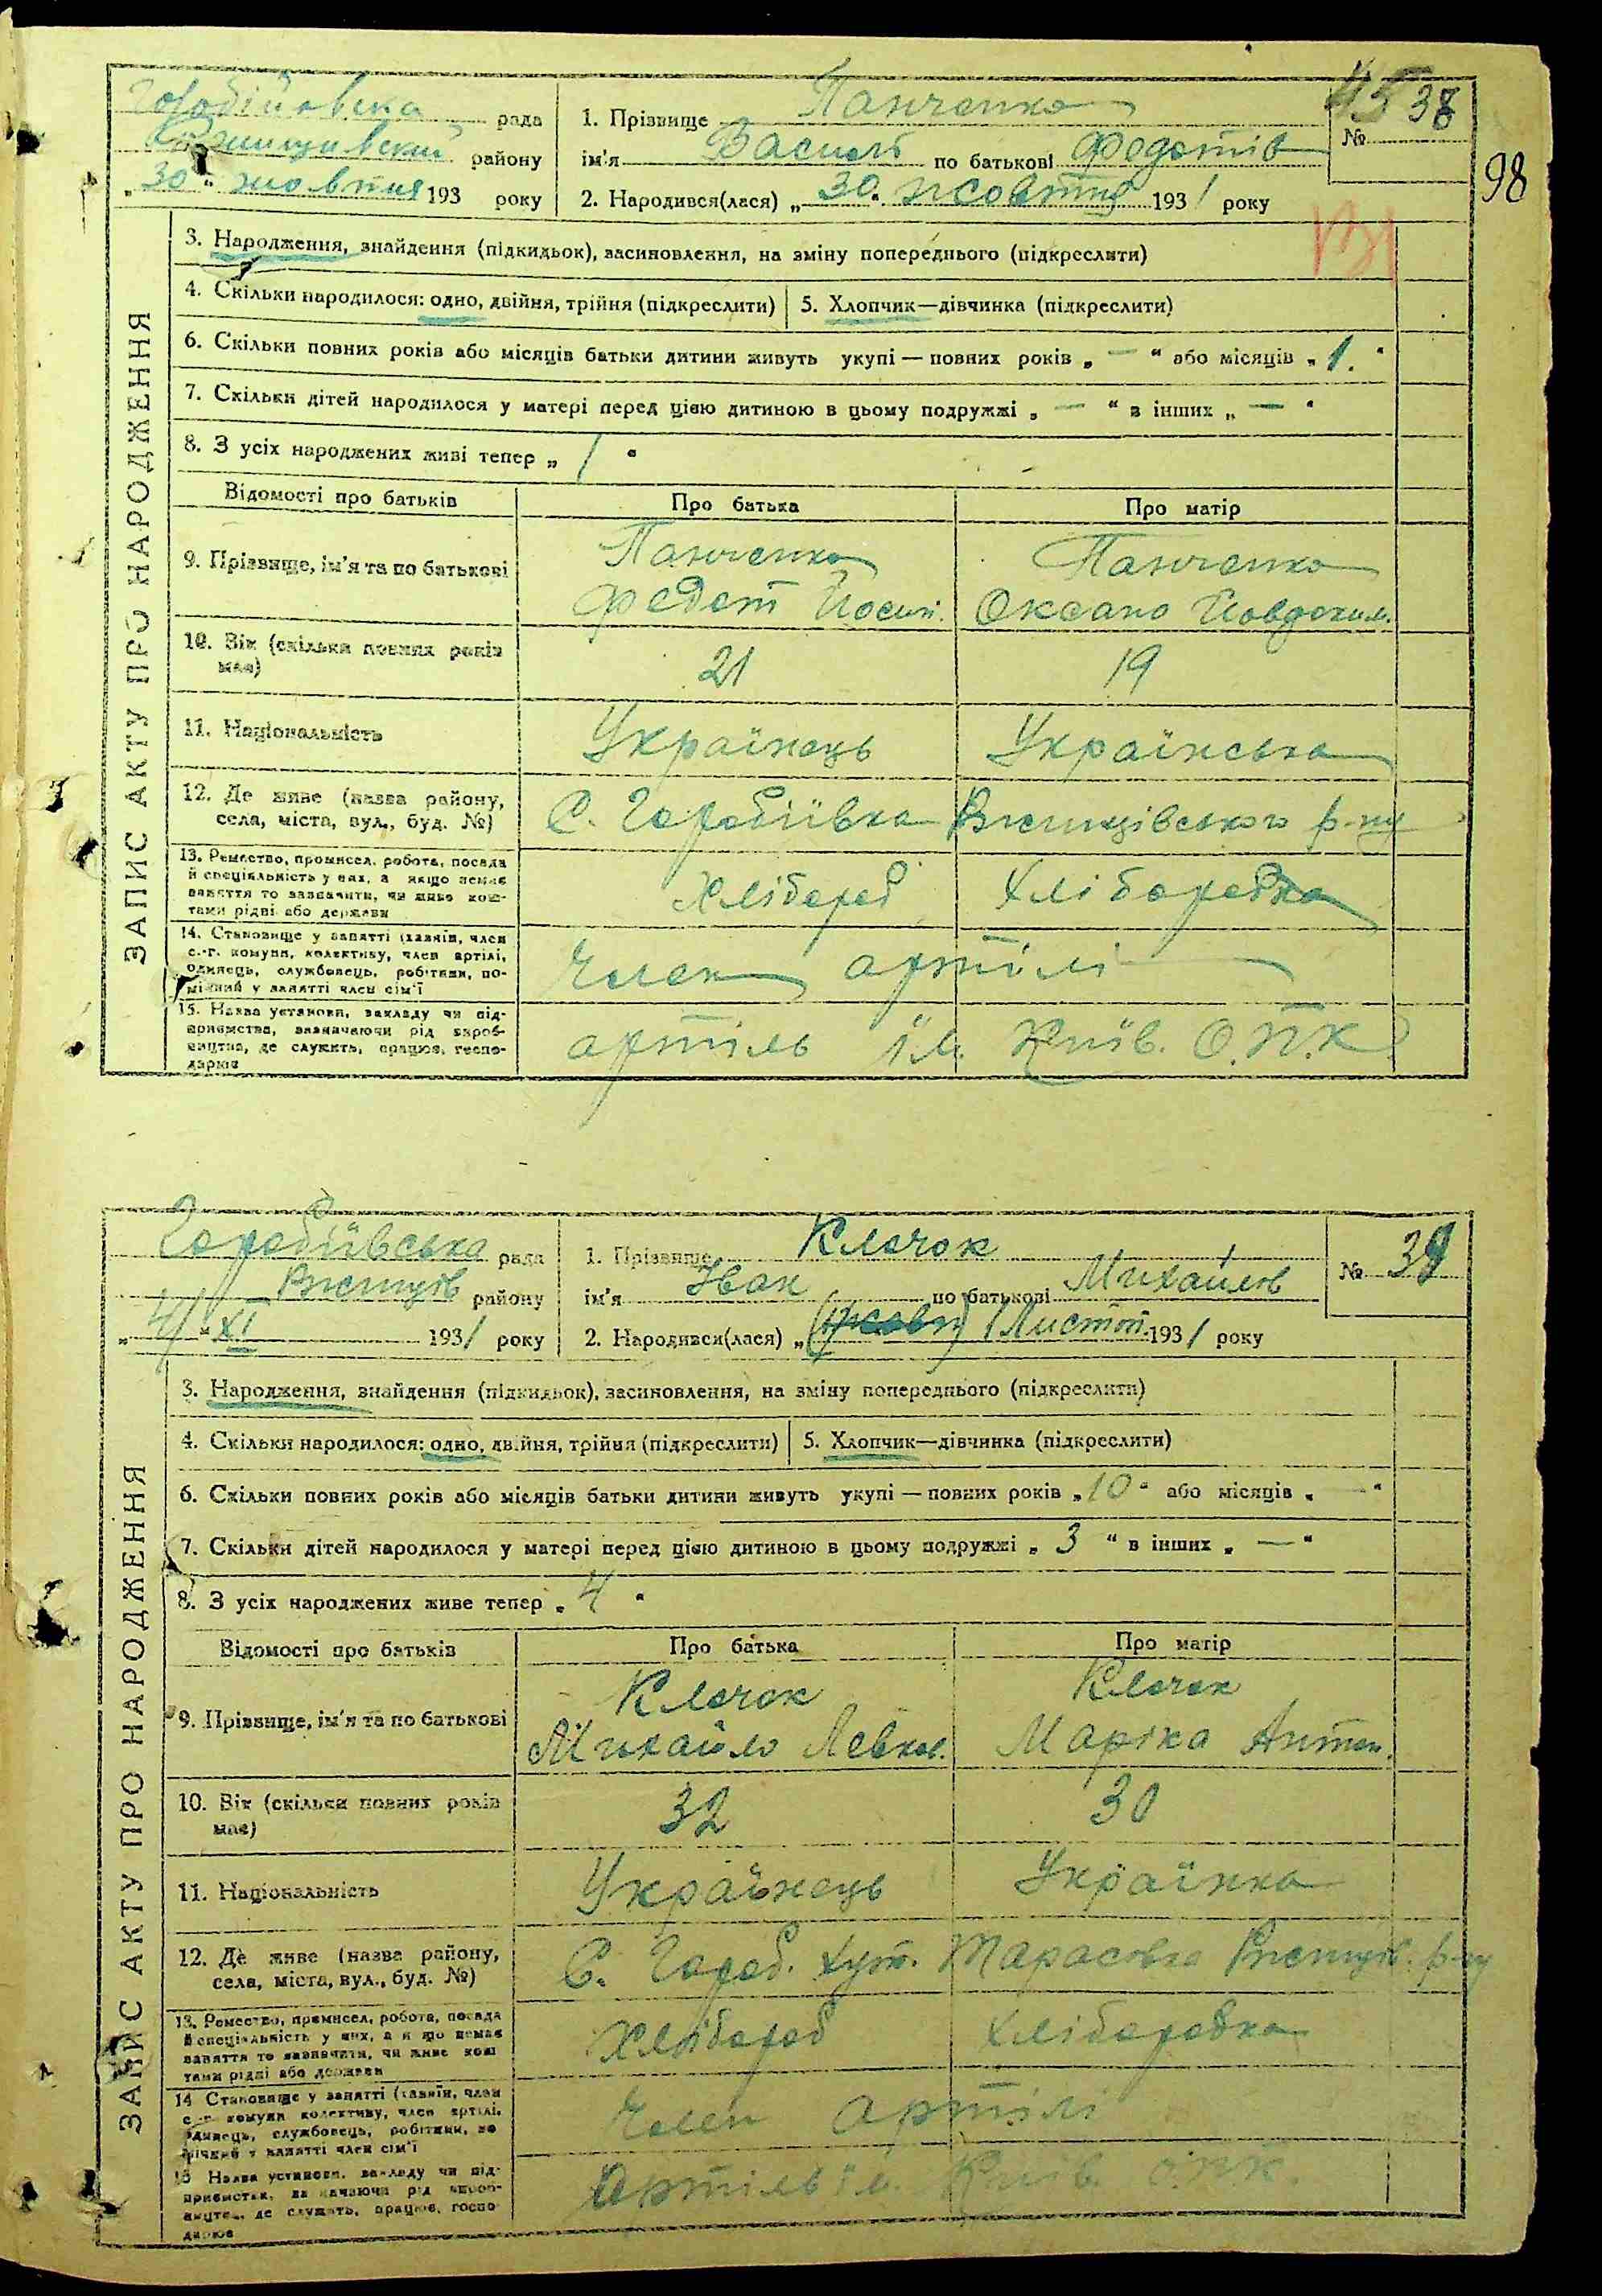 98
ЗАПИС АКТУ ПРО НАРОДЖЕННЯ
рада
району
„30“ жовтня 193 року
1. Прізвище Панченко
ім'я Василь по батькові Федотів
2. Народився(лася) „30“ жовтня 1931 року
45 38
№
3. Народження, знайдення (підкидьок), засиновлення, на зміну попереднього (підкреслити)
4. Скільки народилося: одно, двійня, трійня (підкреслити)
5. Хлопчик—дівчинка (підкреслити)
6. Скільки повних років або місяців батьки дитини живуть укупі — повних років „—“ або місяців „1.“
7. Скільки дітей народилося у матері перед цією дитиною в цьому подружжі „—“ в інших „—“
8. З усіх народжених живі тепер „1“
Відомості про батьків
Про батька
Про матір
9. Прізвище, ім'я та по батькові
Панченко
Федот Йосип.
Панченко
Оксана Йовдохим.
10. Вік (скільки повних років має)
21
19
11. Національність
Українець
Українська
12. Де живе (назва району,
села, міста, вул., буд. №)
С. Горобіївка Ржищівського р-ну
13. Ремество, промисел, робота, посада
й спеціяльність у них, а якщо немає
заняття то зазначити, чи живе кош-
тами рідні або держави
Хлібороб
Хліборобка
14. Становище у занятті (хазяїн, член
с.-г. комуни, колективу, член артілі,
одинець, службовець, робітник, по-
мічний у занятті член сім'ї
Член артілі
15. Назва установи, закладу чи під-
приємства, зазначаючи рід вироб-
ництва, де служить, працює, госпо-
дарює
артіль ім. Київ. О.П.К.
ЗАПИС АКТУ ПРО НАРОДЖЕННЯ
Горобіївська рада
Ржищів району
„4“ XI 1931 року
1. Прізвище Клочок
ім'я Іван по батькові Михайлов
2. Народився(лася) „ 1 Листоп. 1931 року
№ 39
3. Народження, знайдення (підкидьок), засиновлення, на зміну попереднього (підкреслити)
4. Скільки народилося: одно, двійня, трійня (підкреслити)
5. Хлопчик—дівчинка (підкреслити)
6. Скільки повних років або місяців батьки дитини живуть укупі — повних років „10“ або місяців „—“
7. Скільки дітей народилося у матері перед цією дитиною в цьому подружжі „3“ в інших „—“
8. З усіх народжених живе тепер „4“
Відомості про батьків
Про батька
Про матір
9. Прізвище, ім'я та по батькові
Клочок
Михайло Левков.
Клочок
Маріка Антон.
10. Вік (скільки повних років має)
32
30
11. Національність
Українець
Українка
12. Де живе (назва району,
села, міста, вул., буд. №)
С. Гороб. хут. Тарасовка Ржищів. р-ну
13. Ремество, промисел, робота, посада
й спеціяльність у них, а якщо немає
заняття то зазначити, чи живе кош
тами рідні або держави
Хлібороб
Хліборобка
14 Становище у занятті (хазяїн, член
с.-г. комуни колективу, член артілі,
одинець, службовець, робітник, по
мічний у занятті член сім'ї
Член артілі
15 Назва установи, закладу чи під-
приємства, зазначаючи рід вироб-
ництва, де служить, працює, госпо
дарює
Артіль ім. Київ. О.П.К.